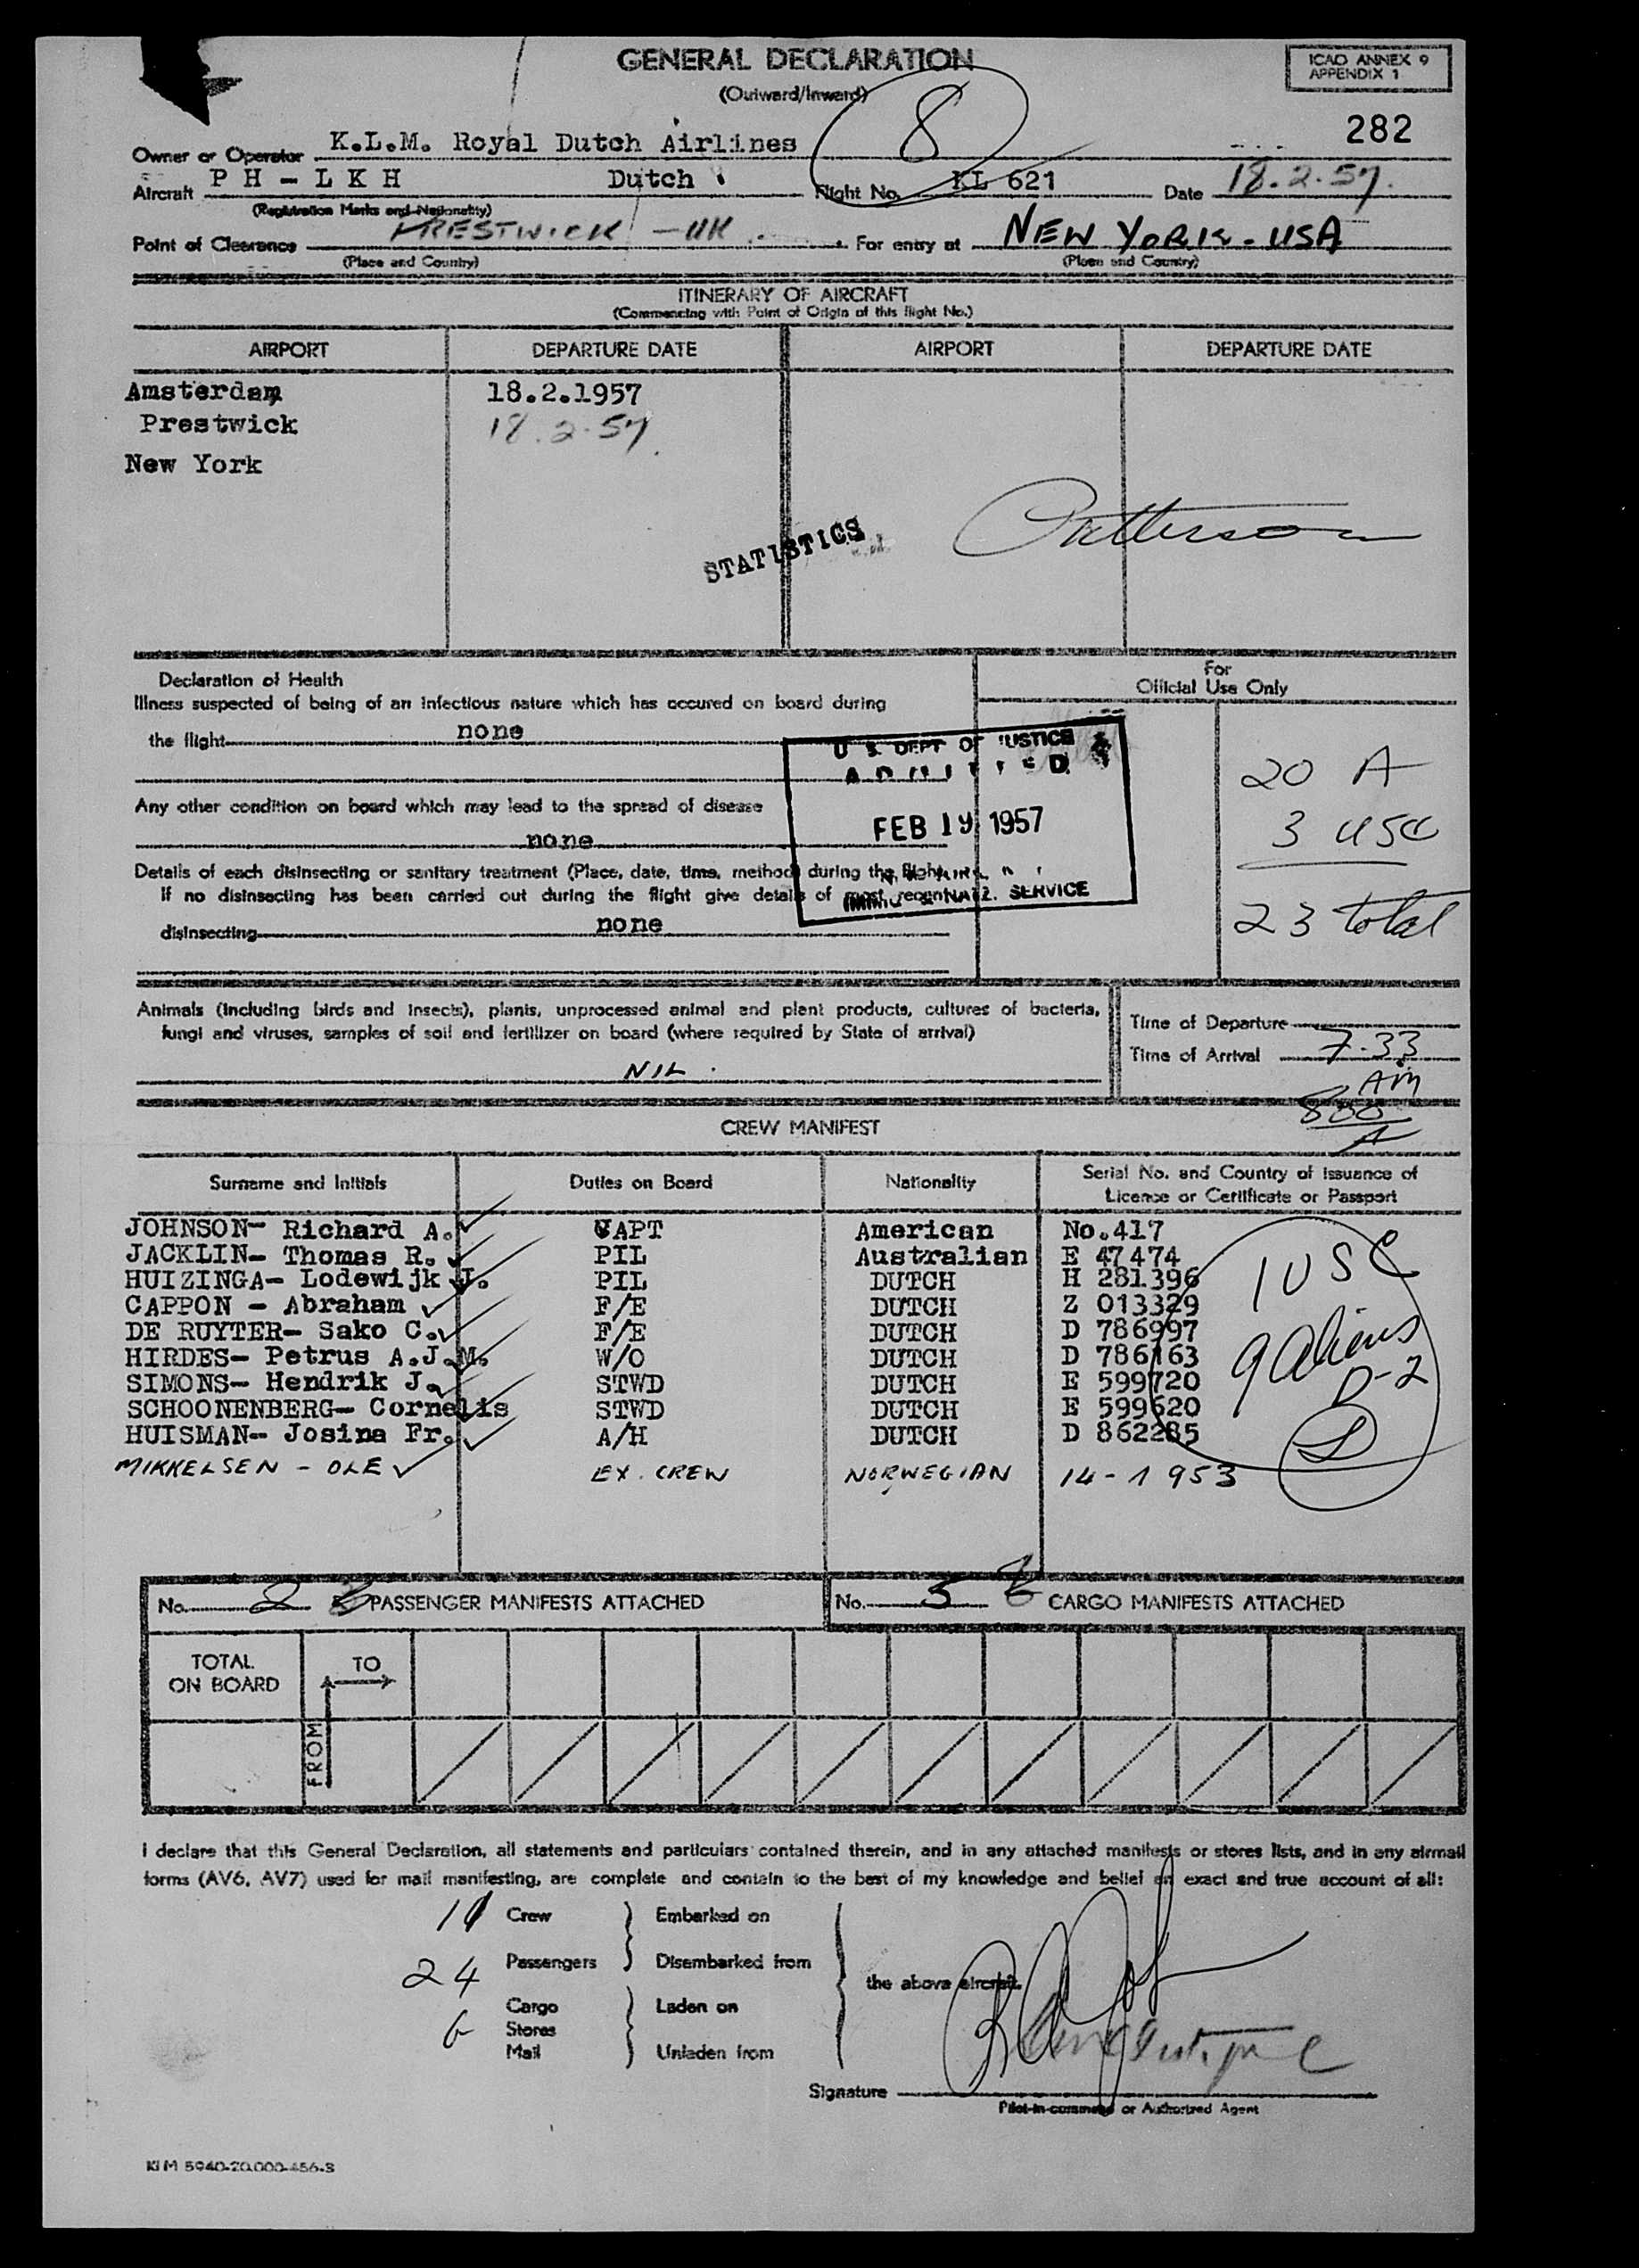 GENERAL DECLARATION
(Outward/Inward)
ICAO ANNEX 9
APPENDIX 1
8
282
Owner or Operator K.L.M. Royal Dutch Airlines
Aircraft PH-LKH Dutch Flight No. KL 621 Date 18.2.57.
(Registration Marks and Nationality)
Point of Clearance PRESTWICK - UK For entry at NEW YORK - USA
(Place and Country) (Place and Country)
ITINERARY OF AIRCRAFT
(Commencing with Point of Origin of this flight No.)
AIRPORT DEPARTURE DATE AIRPORT DEPARTURE DATE
Amsterdam 18.2.1957
Prestwick 18.2.57.
New York
STATISTICS
Patterson
Declaration of Health
Illness suspected of being of an infectious nature which has occured on board during
the flight none
For
Official Use Only
U S. DEPT OF JUSTICE
ADMITTED
FEB 19 1957
NATZ. SERVICE
20 A
3 USC
23 total
Any other condition on board which may lead to the spread of disease
none
Details of each disinsecting or sanitary treatment (Place, date, time, method) during the flight
If no disinsecting has been carried out during the flight give details of most recent
disinsecting none
Animals (including birds and insects), plants, unprocessed animal and plant products, cultures of bacteria,
fungi and viruses, samples of soil and fertilizer on board (where required by State of arrival)
NIL.
Time of Departure
Time of Arrival 7.33
AM
800
A
CREW MANIFEST
Surname and Initials Duties on Board Nationality Serial No. and Country of Issuance of
Licence or Certificate or Passport
JOHNSON- Richard A. CAPT American No.417
JACKLIN- Thomas R. PIL Australian E 47474
HUIZINGA- Lodewijk J. PIL DUTCH H 281396
CAPPON - Abraham F/E DUTCH Z 013329
DE RUYTER- Sako C. F/E DUTCH D 786997
HIRDES- Petrus A.J.M. W/O DUTCH D 786163
SIMONS- Hendrik J. STWD DUTCH E 599720
SCHOONENBERG- Cornelis STWD DUTCH E 599620
HUISMAN-- Josina Fr. A/H DUTCH D 862285
MIKKELSEN - OLE EX. CREW NORWEGIAN 14-1953
1 USC
9 Aliens
D-2
No. 2 3 PASSENGER MANIFESTS ATTACHED No. 5 6 CARGO MANIFESTS ATTACHED
TOTAL
ON BOARD
TO
FROM
I declare that this General Declaration, all statements and particulars contained therein, and in any attached manifests or stores lists, and in any airmail
forms (AV6, AV7) used for mail manifesting, are complete and contain to the best of my knowledge and belief an exact and true account of all:
Crew Embarked on
24 Passengers Disembarked from
the above aircraft.
6 Cargo Laden on
Stores
Mail Unladen from
Signature
Pilot-in-command or Authorized Agent
KLM 5940-20.000-456-S